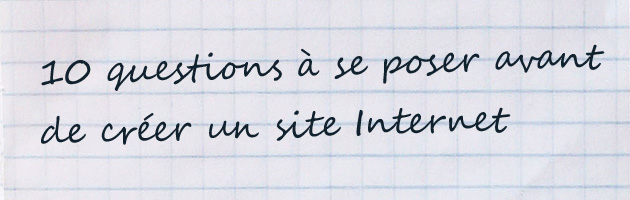 10 questions à se poser avant
de créer un site Internet